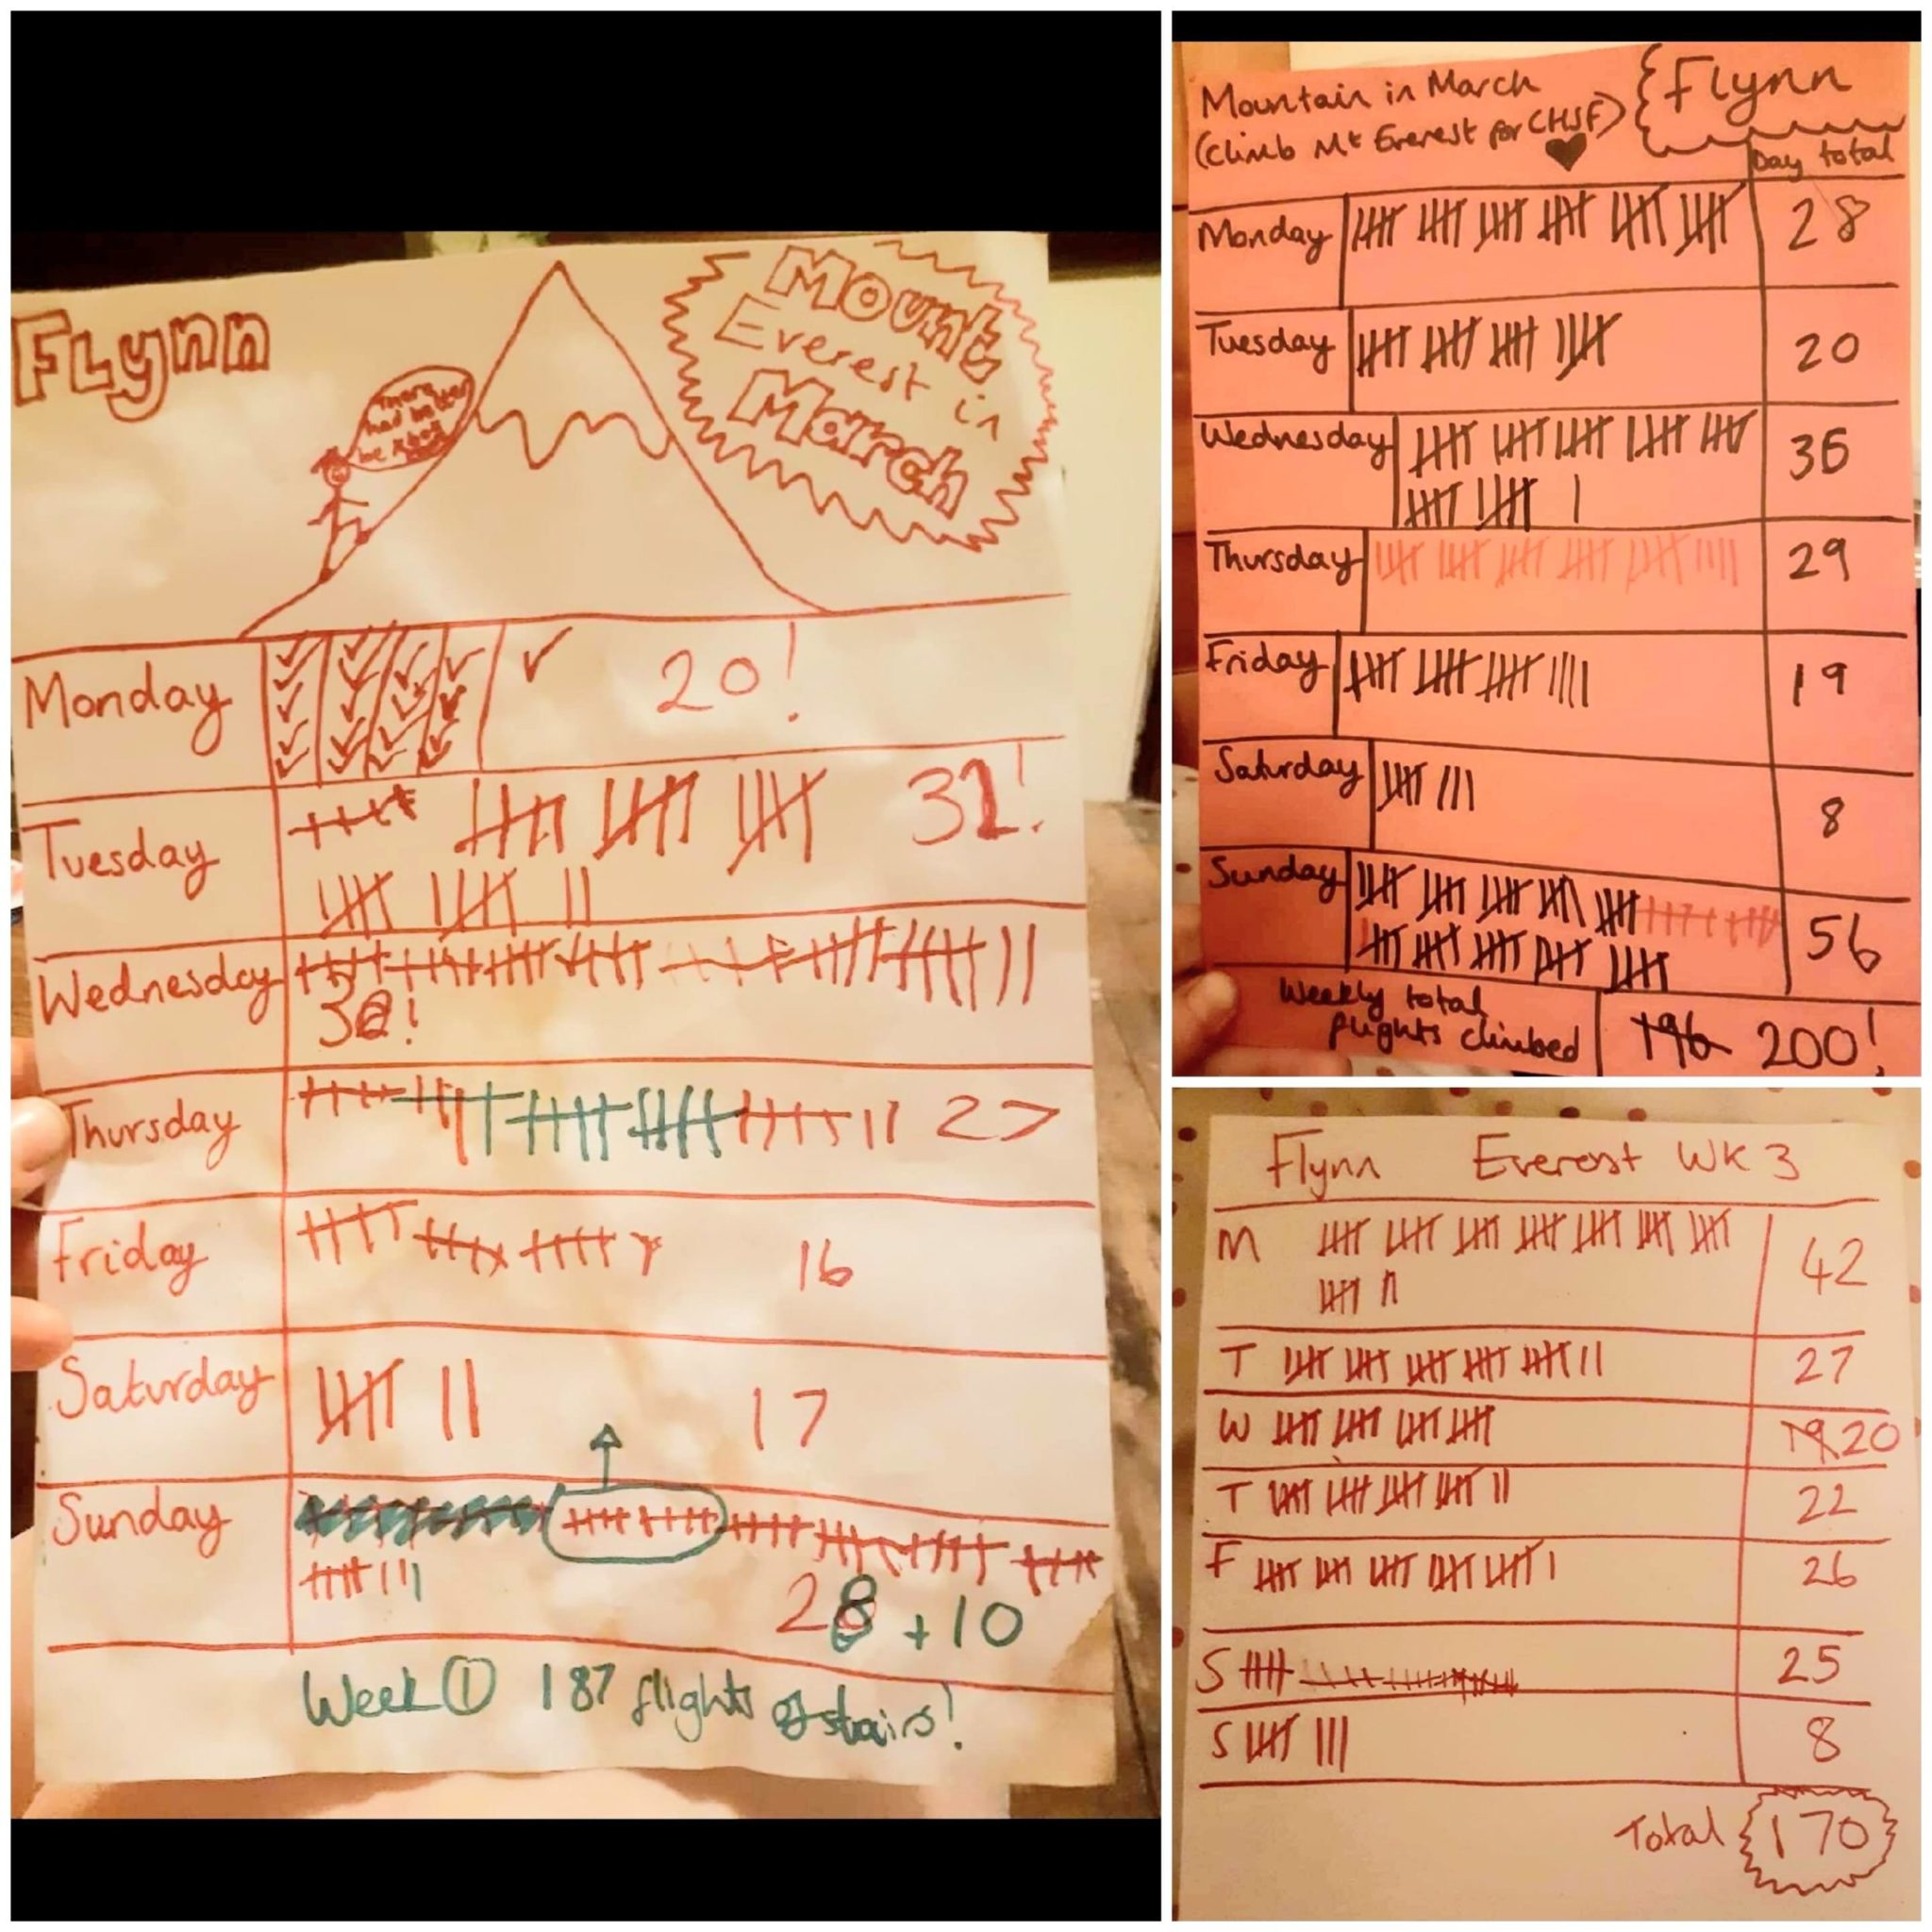 Flynn
Mount
Everest in
March
There
had better
be
Monday 20!
Tuesday 31!
Wednesday
Thursday 27
Friday 16
Saturday 17
Sunday
28 + 10
Week 1 187 flights of stairs!
Mountain in March
(Climb Mt Everest for CHSF)
Flynn
Day total
Monday 28
Tuesday 20
Wednesday 36
Thursday 29
Friday 19
Saturday 8
Sunday 56
Weekly total
flights climbed 196 200!
Flynn Everest WK 3
M 42
T 27
W 19 20
T 22
F 26
S 25
S 8
Total 170